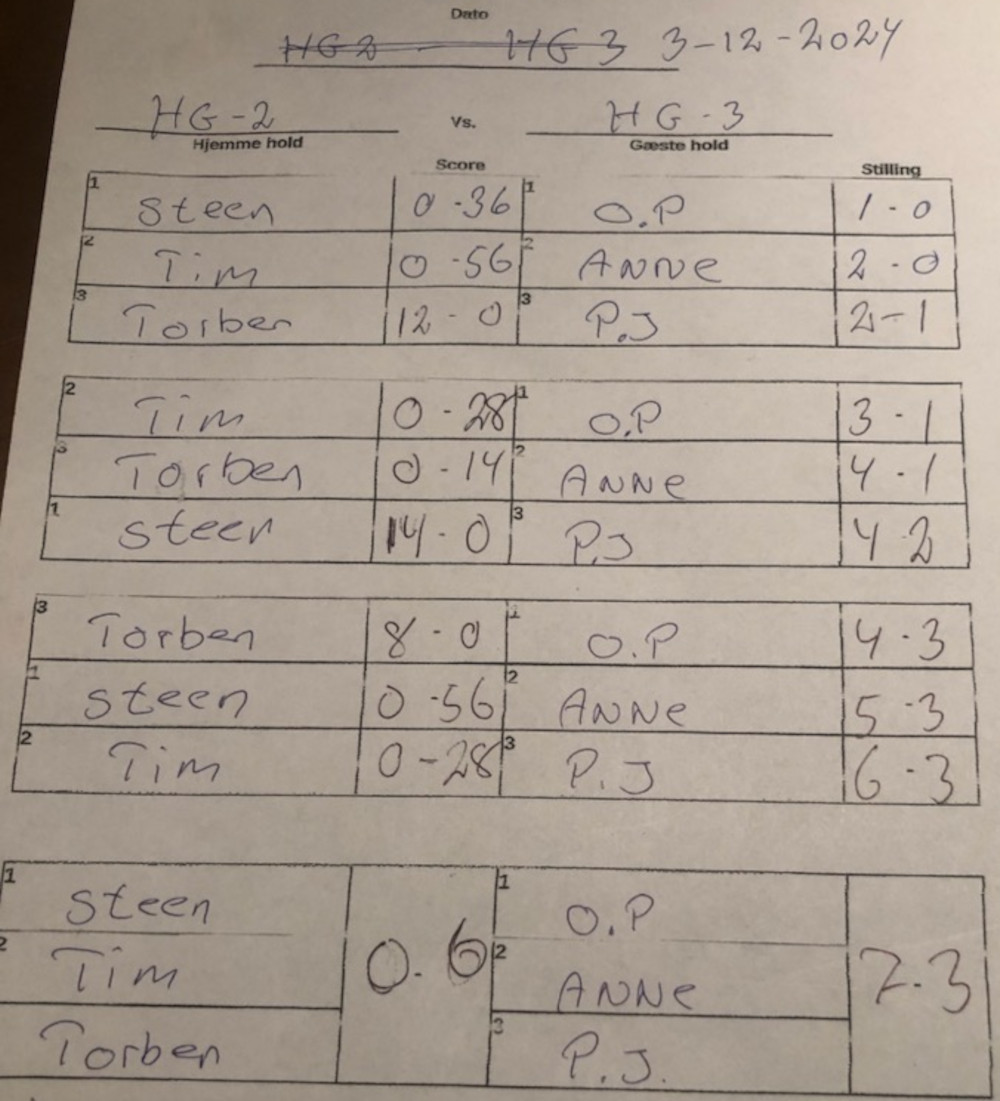 Dato
HG 2 - HG 3 3-12-2024
HG-2 Vs. HG-3
Hjemme hold Gæste hold
Score Stilling
1 Steen 0-36 1 O.P 1-0
2 Tim 0-56 2 ANNe 2-0
3 Torben 12-0 3 P.J 2-1
2 Tim 0-28 1 O.P 3-1
3 Torben 0-14 2 ANNe 4-1
1 Steen 14-0 3 P.J 4-2
3 Torben 8-0 1 O.P 4-3
1 Steen 0-56 2 ANNe 5-3
2 Tim 0-28 3 P.J 6-3
1 Steen 1 O.P
2 Tim 0.6 2 ANNe 7.3
Torben 3 P.J.